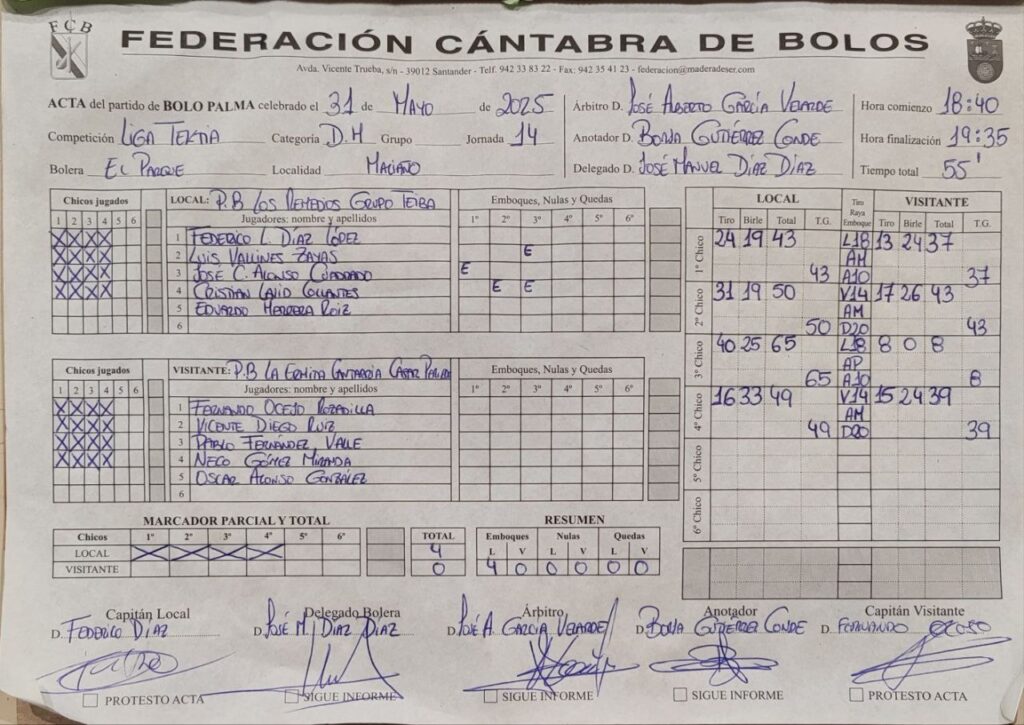 FCB
FEDERACIÓN CÁNTABRA DE BOLOS
Avda. Vicente Trueba, s/n - 39012 Santander - Telf. 942 33 83 22 - Fax: 942 35 41 23 - federacion@maderadeser.com
ACTA del partido de BOLO PALMA celebrado el 31 de MAYO de 2025
Árbitro D. JOSÉ ALBERTO GARCÍA VELARDE
Hora comienzo 18:40
Competición LIGA TEKTIA Categoría D.H Grupo Jornada 14
Anotador D. BORJA GUTIÉRREZ CONDE
Hora finalización 19:35
Bolera EL PARQUE Localidad MALIAÑO
Delegado D. JOSÉ MANUEL DÍAZ DÍAZ
Tiempo total 55'
Chicos jugados LOCAL: P.B LOS REMEDIOS GRUPO TEIBA Emboques, Nulas y Quedas
1 2 3 4 5 6 Jugadores: nombre y apellidos 1º 2º 3º 4º 5º 6º
X X X X 1 FEDERICO L. DÍAZ LÓPEZ
X X X X 2 LUIS VALLINES ZAYAS E
X X X X 3 JOSE C. ALONSO CUADRADO E
X X X X 4 CRISTIAN LAVID COLLANTES E E
5 EDUARDO HERRERA RUIZ
6
Chicos jugados VISITANTE: P.B LA ERMITA CANTABRIA CASAR Emboques, Nulas y Quedas
1 2 3 4 5 6 Jugadores: nombre y apellidos 1º 2º 3º 4º 5º 6º
X X X X 1 FERNANDO OCEJO
X X X X 2 VICENTE DIEGO RUIZ
X X X X 3 PABLO FERNÁNDEZ VALLE
X X X X 4 NECO GÓMEZ MIRANDA
5 OSCAR ALONSO GONZÁLEZ
6
MARCADOR PARCIAL Y TOTAL
Chicos 1º 2º 3º 4º 5º 6º TOTAL
LOCAL X X X X 4
VISITANTE 0
RESUMEN
Emboques Nulas Quedas
L V L V L V
4 0 0 0 0 0
LOCAL Tiro Raya Emboque VISITANTE
Tiro Birle Total T.G. Tiro Birle Total T.G.
1º Chico 24 19 43 L18 13 24 37
AM
43 A10 37
2º Chico 31 19 50 V14 17 26 43
AM
50 D20 43
3º Chico 40 25 65 L18 8 0 8
AP
65 A10 8
4º Chico 16 33 49 V14 15 24 39
AM
49 D20 39
5º Chico
6º Chico
Capitán Local Delegado Bolera Árbitro Anotador Capitán Visitante
D. FEDERICO DÍAZ D. JOSÉ M. DÍAZ DÍAZ D. JOSÉ A. GARCÍA VELARDE D. BORJA GUTIÉRREZ CONDE D. FERNANDO
PROTESTO ACTA SIGUE INFORME SIGUE INFORME SIGUE INFORME PROTESTO ACTA